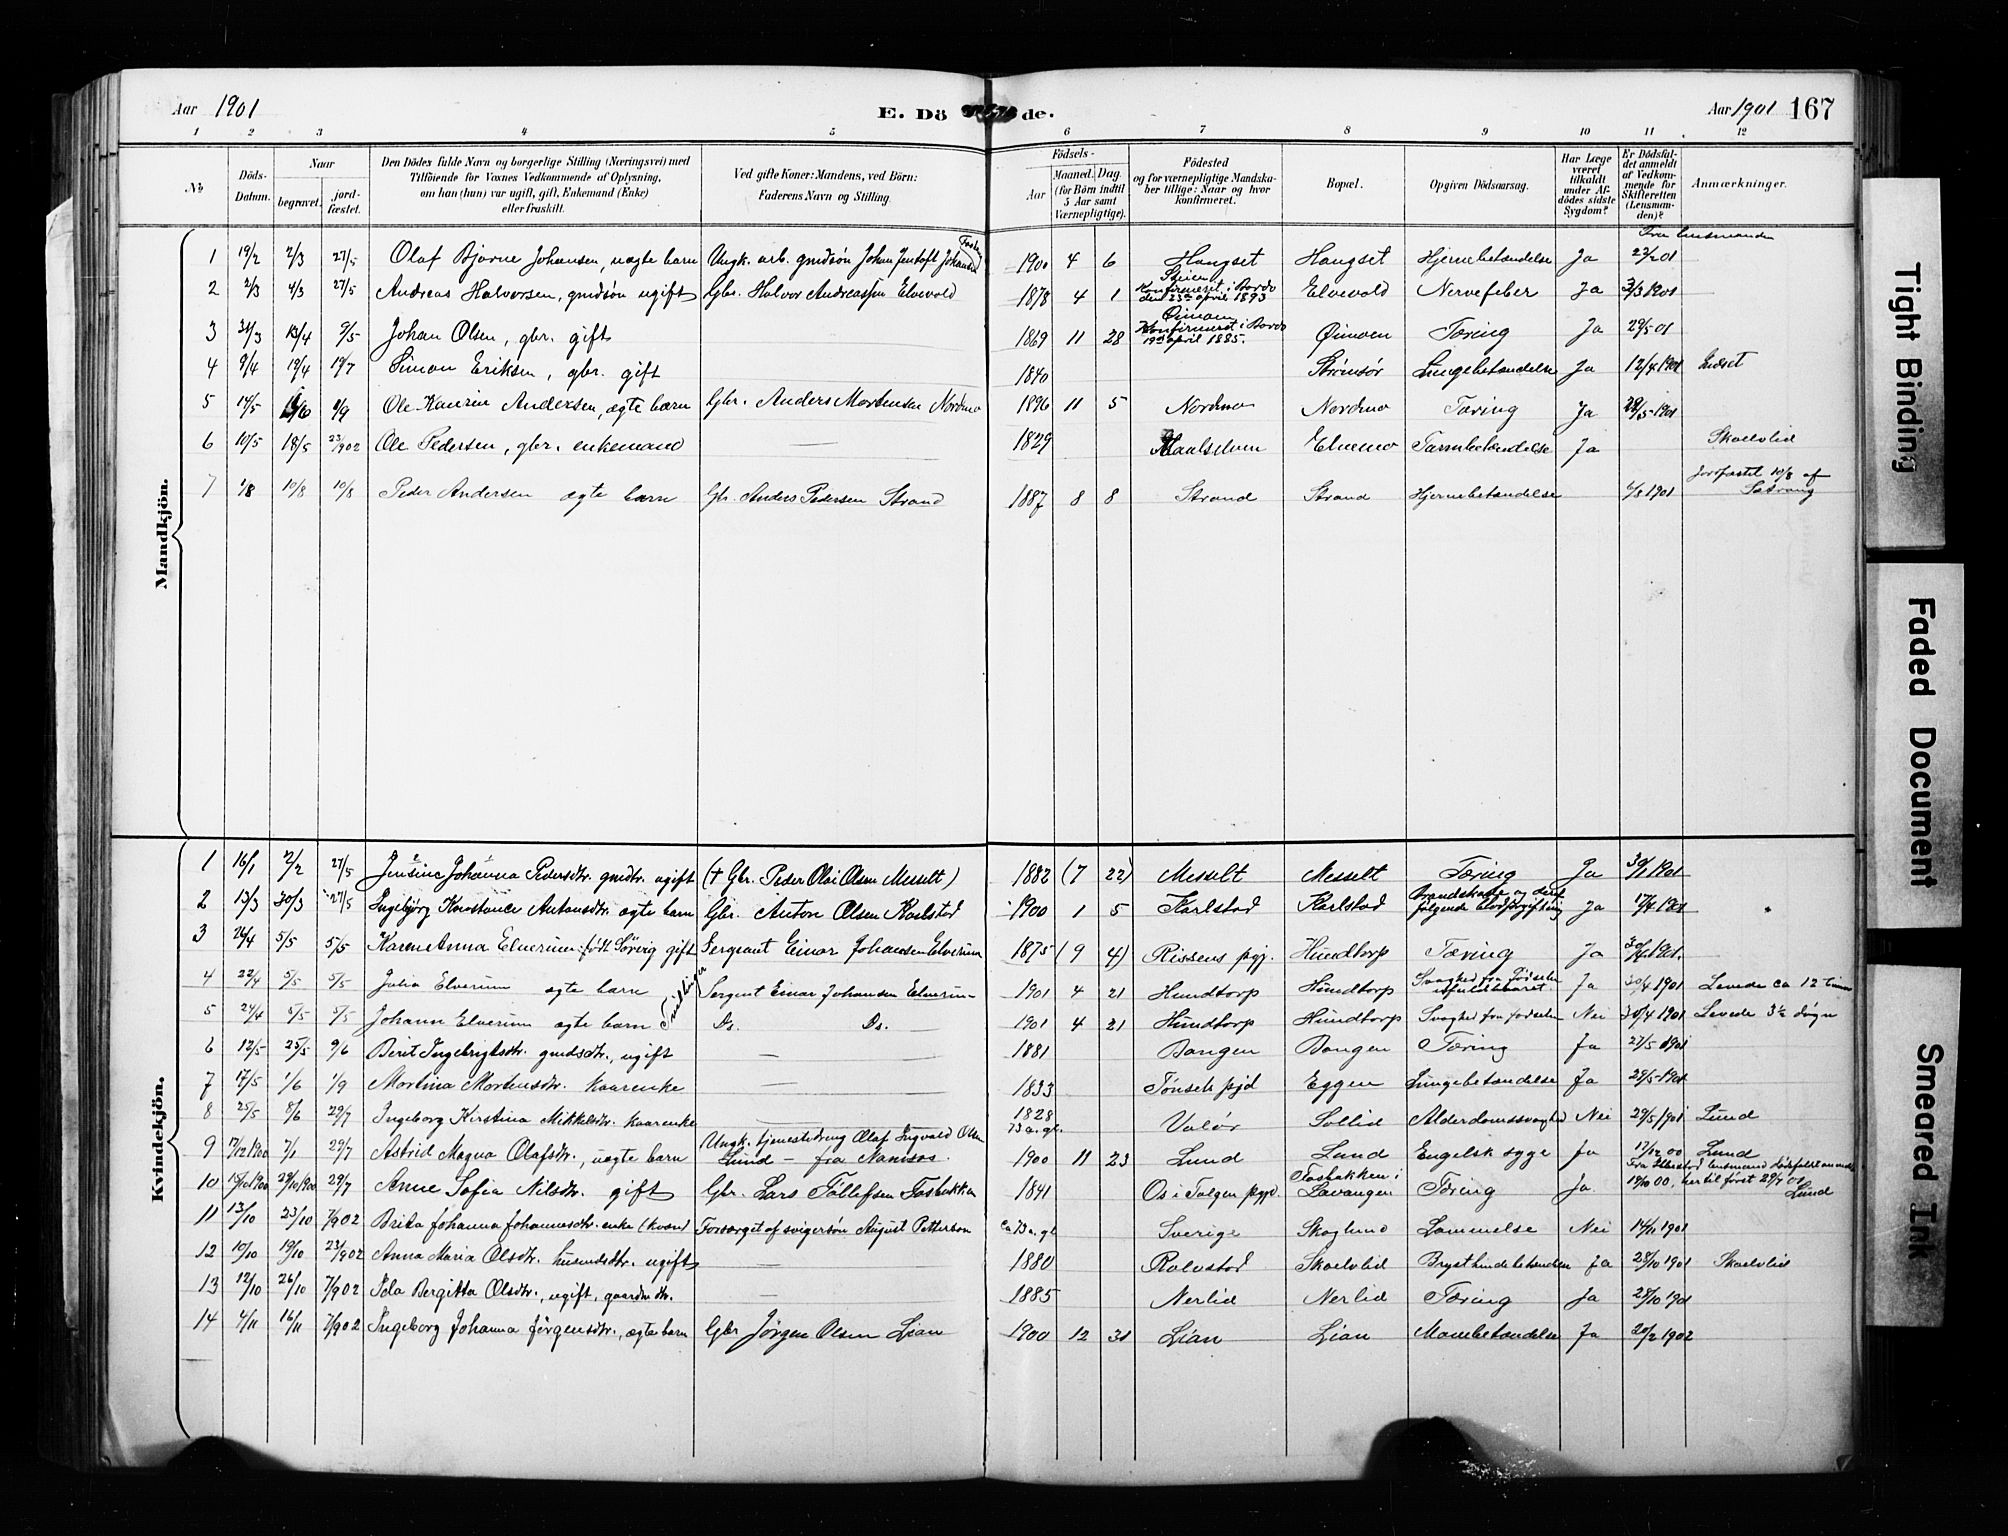 Aar 1901
E. Dö de.
Aar 1901 167
1 2 3 4 5 6 7 8 9 10 11 12
No
Döds-Datum.
Naar
begravet.
jord-fæstet.
Den Dödes fulde Navn og borgerlige Stilling (Næringsvei) med
Tilföiende for Voxnes Vedkommende af Oplysning,
om han (hun) var ugift, gift, Enkemand (Enke)
eller fraskilt.
Ved gifte Koner: Mandens, ved Börn:
Faderens Navn og Stilling.
Födsels-
Aar
Maaned. Dag.
(for Börn indtil
5 Aar samt
Værnepligtige).
Födested
og for værnepligtige Mandska-
ber tillige: Naar og hvor
konfirmeret.
Bopæl.
Opgiven Dödsaarsag.
Har Læge
været
tilkaldt
under Af-
dödes sidste
Sygdom?
Er Dödsfal-
det anmeldt
af Vedkom-
mende for
Skifteretten
(Lensman-
den)?
Anmærkninger.
Mandkjön.
Fra lensmanden
1 19/2 2/3 27/5 Olaf Bjarne Johansen, uægte barn Ungk. arb. gmdsön Johan Jentoft Johansen 1900 4 6 Haugset Haugset Hjernebetændelse Ja 22/2 01
2 2/3 4/3 27/5 Andreas Halvorsen, gmdsön ugift Gbr. Halvor Andreassen Elvevold 1878 4 1 Steien Konfirmeret i Bardo den 23de april 1893 Elvevold Nervefeber Ja 3/3 1901
3 31/3 13/4 9/5 Johan Olsen, gbr. gift 1869 11 28 Øimoen Konfirmeret i Bardo 19de april 1885. Øimoen Tæring Ja 29/5 01
4 9/4 19/4 19/7 Simon Eriksen, gbr. gift 1840 Strömsör Lungebetændelse Ja 12/4 1901
5 14/5 1/6 1/9 Ole Kaurin Andersen, ægte barn Gbr. Anders Mortensen Nordmo 1896 11 5 Nordmo Nordmo Tæring Ja 28/5 1901
6 10/5 18/5 23/902 Ole Pedersen, gbr. enkemand — 1829 Maalselven Elvemo Tarmbetændelse Ja Skoelvlid
7 1/8 10/8 10/8 Peder Andersen ægte barn Gbr. Anders Pedersen Strand 1887 8 8 Strand Strand Hjernebetændelse 6/8 1901 jordfæstet 10/8 af Sætrang
Kvindekjön.
1 16/1 2/2 27/5 Jensine Johanna Pedersdtr. gmdtr. ugift († Gbr. Peder Olai Olsen Messelt) 1882 (7 22) Messelt Messelt Tæring Ja 30/1 1901
2 13/3 30/3 27/5 Ingebjörg Konstance Antonsdtr. ægte barn Gbr. Anton Olsen Karlstad 1900 1 5 Karlstad Karlstad Brandskade og deraf følgende blodforgiftning Ja 17/4 1901
3 26/4 5/5 5/5 Karen Anna Elverum född Sörvig gift Sergeant Einar Johansen Elverum 1875 (9 4) Rissens pgj. Hundtorp Tæring Ja 30/4 1901.
4 22/4 5/5 5/5 Julia Elverum ægte barn Tvillinger Sergent Einar Johansen Elverum 1901 4 21 Hundtorp Hundtorp Svaghed fra Födselen ufuldbaaret Ja 30/4 1901 Levede ca 12 timer
5 24/4 5/5 5/5 Johann Elverum ægte barn Ds. Ds. 1901 4 21 Hundtorp Hundtorp Svaghed fra födselen Nei 30/4 1901 Levede 3½ dögn
6 12/5 25/5 9/6 Berit Ingebrigtsdtr. gmdsdtr., ugift — 1881 Bongen Bongen Tæring Ja 27/5 1901
7 17/5 1/6 1/9 Martina Mortensdtr. kaarenke — 1833 Tönset pgjd Eggen Lungebetændelse Ja 28/5 1901
8 25/5 8/6 29/7 Ingeborg Kirstina Mikkelsdtr. kaarenke — 1828 73 a. gl. Valör Sollid Alderdomssvaghed Nei 29/5 1901 Lund
9 17/12 1900 7/1 29/7 Astrid Magna Olafsdtr., uægte barn Ungk. tjenestedreng Olaf Ingvald Olsen Lund – fra Namsos. 1900 11 23 Lund Lund Engelsk syge Ja 17/12 00 Lund
10 15/10 1900 29/10 1900 29/7 Anne Sofia Nilsdtr. gift Gbr. Lars Tollefsen Fosbakken 1841 Os i Tolgen pgjd. Fosbakken i Lavangen Tæring Ja 19/10 00, her til först 29/7 01 Lund
11 13/10 23/10 7/902 Brita Johanna Johannesdtr. enke (kvæn) Forsørget af svigersön August Petterson ca 73 a. gl. Sverige Skoglund Lammelse Nei 14/11 1901
12 10/10 19/10 23/902 Anna Maria Olsdtr. husmdsdtr. ugift — 1880 Rolvstad Skoelvlid Brysthindebetændelse Ja 28/10 1901 Skoelvlid
13 12/10 26/10 7/902 Ida Bergitta Olsdtr., ugift, gaardmdtr. — 1885 Nerlid Nerlid Tæring Ja 28/10 1901
14 4/11 16/11 7/902 Ingeborg Johanna Jörgensdtr., ægte barn Gbr Jörgen Olsen Lian 1900 12 31 Lian Lian Mavebetændelse Ja 20/2 1902
Tight Binding
Faded Document
Smeared Ink